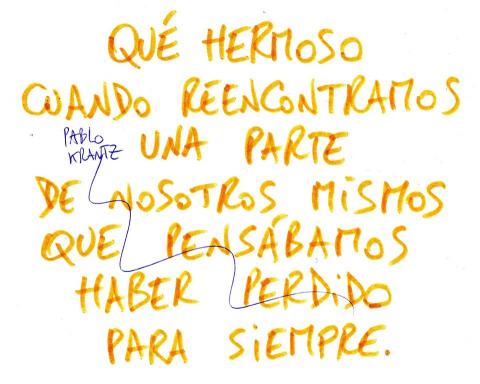 QUÉ HERMOSO
CUANDO REENCONTRAMOS
PABLO
KRANTZ
UNA PARTE
DE NOSOTROS MiSMOS
QUE PENSÁBAMOS
HABER PERDiDO
PARA SiEMPRE.